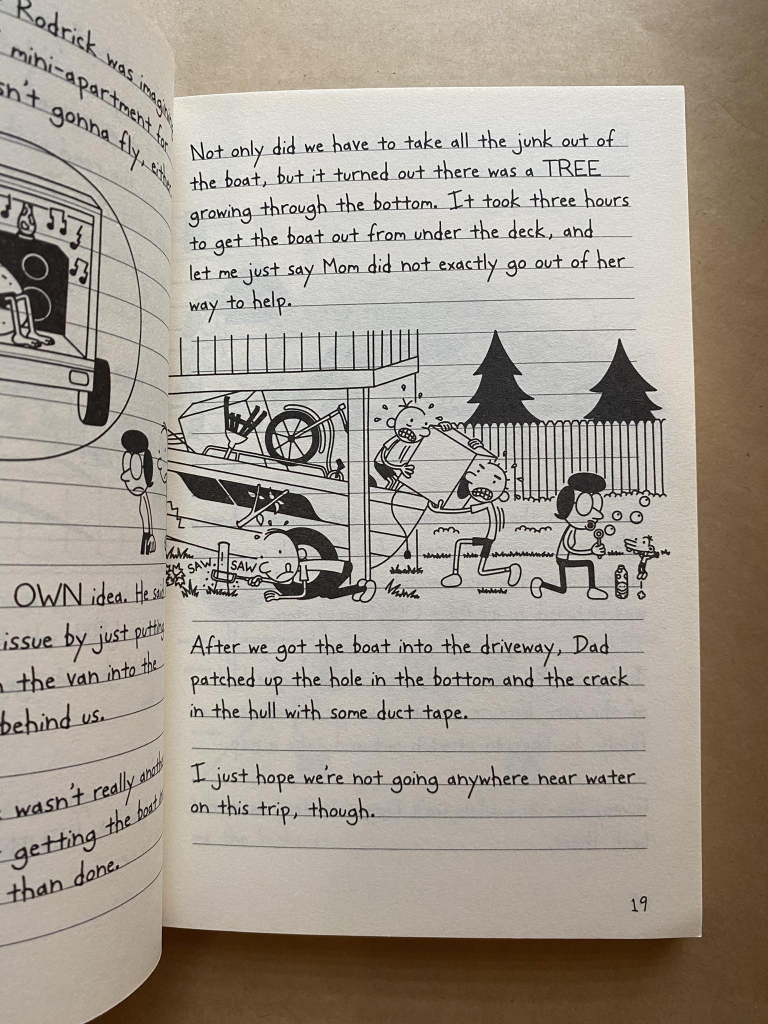 Rodrick was
mini-apartment for
sn't gonna fly,
OWN idea. He
issue by just putting
the van into the
behind us.
wasn't really
getting the boat
than done.
Not only did we have to take all the junk out of
the boat, but it turned out there was a TREE
growing through the bottom. It took three hours
to get the boat out from under the deck, and
let me just say Mom did not exactly go out of her
way to help.
SAW SAW
After we got the boat into the driveway, Dad
patched up the hole in the bottom and the crack
in the hull with some duct tape.
I just hope we're not going anywhere near water
on this trip, though.
19